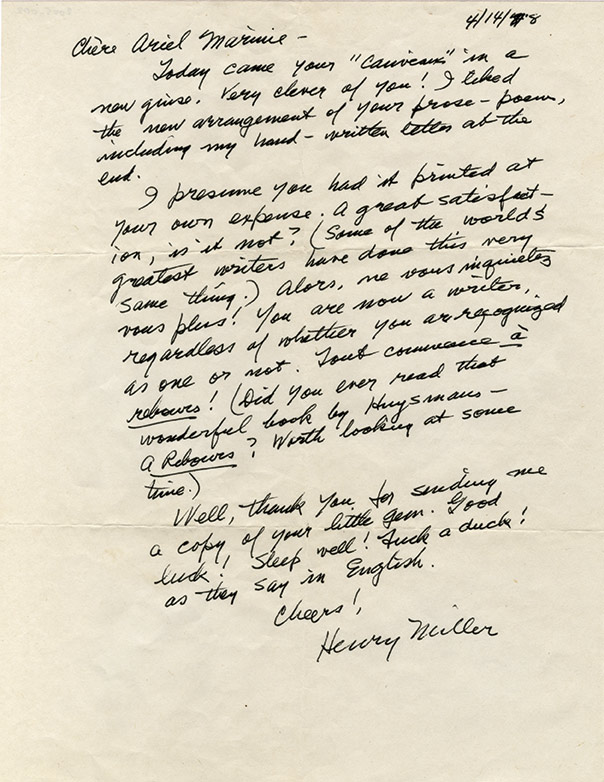 4/14/78
Chère Ariel Marinie –
Today came your "Cauveaux" in a
new guise. Very clever of you! I liked
the new arrangement of your prose-poem,
including my hand-written letter at the
end.
I presume you had it printed at
your own expense. A great satisfact-
ion, is it not? (Some of the world's
greatest writers have done this very
same thing.) Alors, ne vous inquietez
vous plus! You are now a writer,
regardless of whether you are recognized
as one or not. Tout commence à
rebours! (Did you ever read that
wonderful book by Huysmans –
A Rebours? Worth looking at some
time.)
Well, thank you for sending me
a copy of your little gem. Good
luck! Sleep well! Fuck a duck!
as they say in English.
Cheers!
Henry Miller